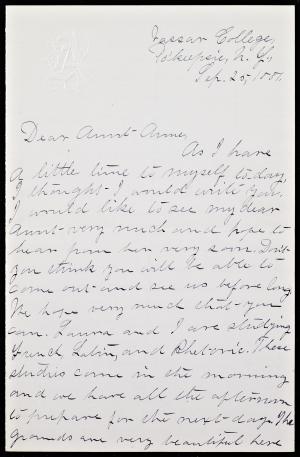 Vassar College,
Po'keepsie, N. Y.,
Sep. 25, 1881.
Dear Aunt Anne,
As I have
a little time to myself to day,
I thought I would write you.
I would like to see my dear
Aunt very much and hope to
hear from her very soon. Don't
you think you will be able to
come out and see us before long
We hope very much that you
can. Laura and I are studying
French, Latin, and Rhetoric. These
studies come in the morning
and we have all the afternoon
to prepare for the next day. The
grounds are very beautiful here